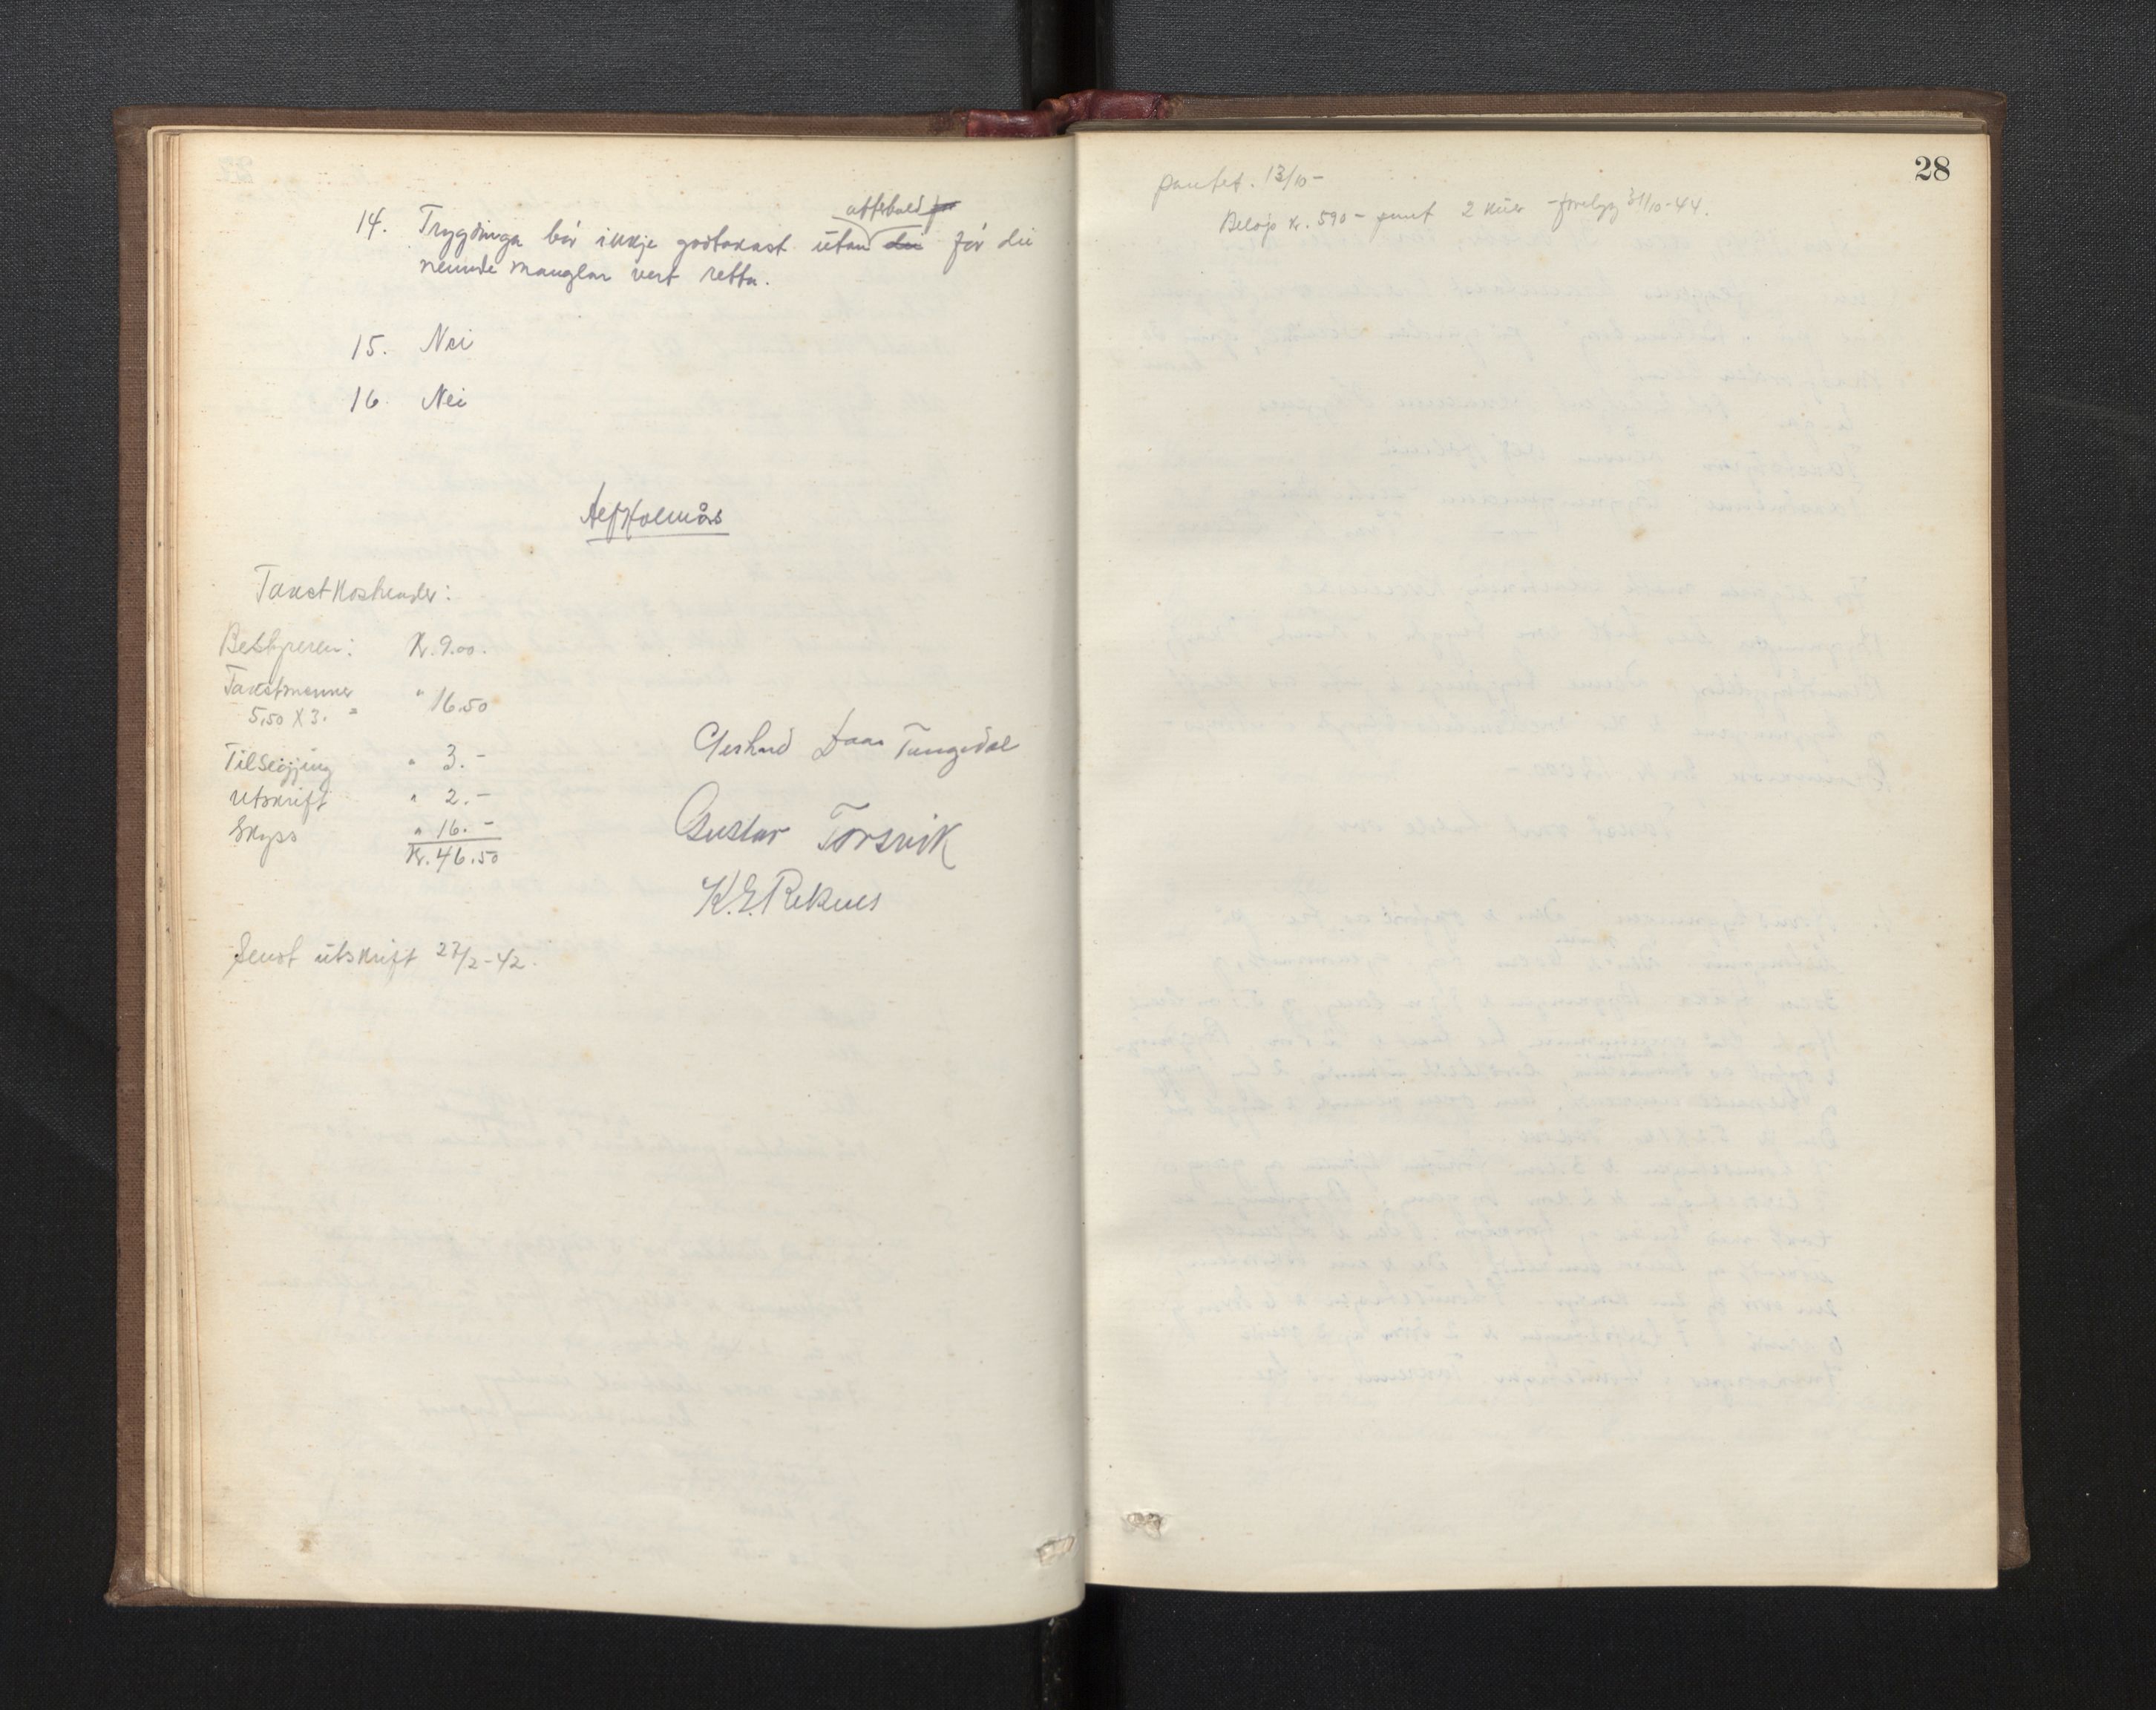 14. Trygdinga bør ikkje godtakast utan atterhald før dei
nemnde manglar vert retta.
15. Nei
16. Nei
Alf Holmås
Takstkostnader:
Bestyreren: Kr. 9.00.
Takstmenner " 16.50
5,50 X 3. =
Tilseijing " 3.-
Utskrift " 2.-
Skyss " 16.-
Kr. 46.50
Gerhard Daae Tungodal
Gustav Torsvik
K. E. Reknes
Sendt utskrift 27/2-42.
28
pantet. 13/10-
Beløp kr. 590- pant 2 kuer - 31/10-44.